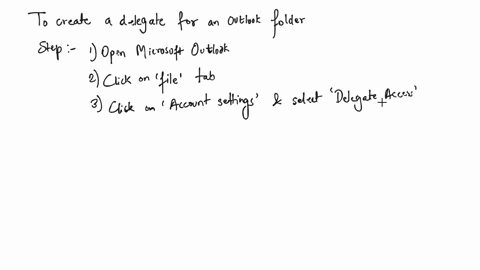 To create a delegate for an Outlook folder
Step :- 1) Open Microsoft Outlook
2) Click on 'file' tab
3) Click on 'Account settings' & select 'Delegate Access'